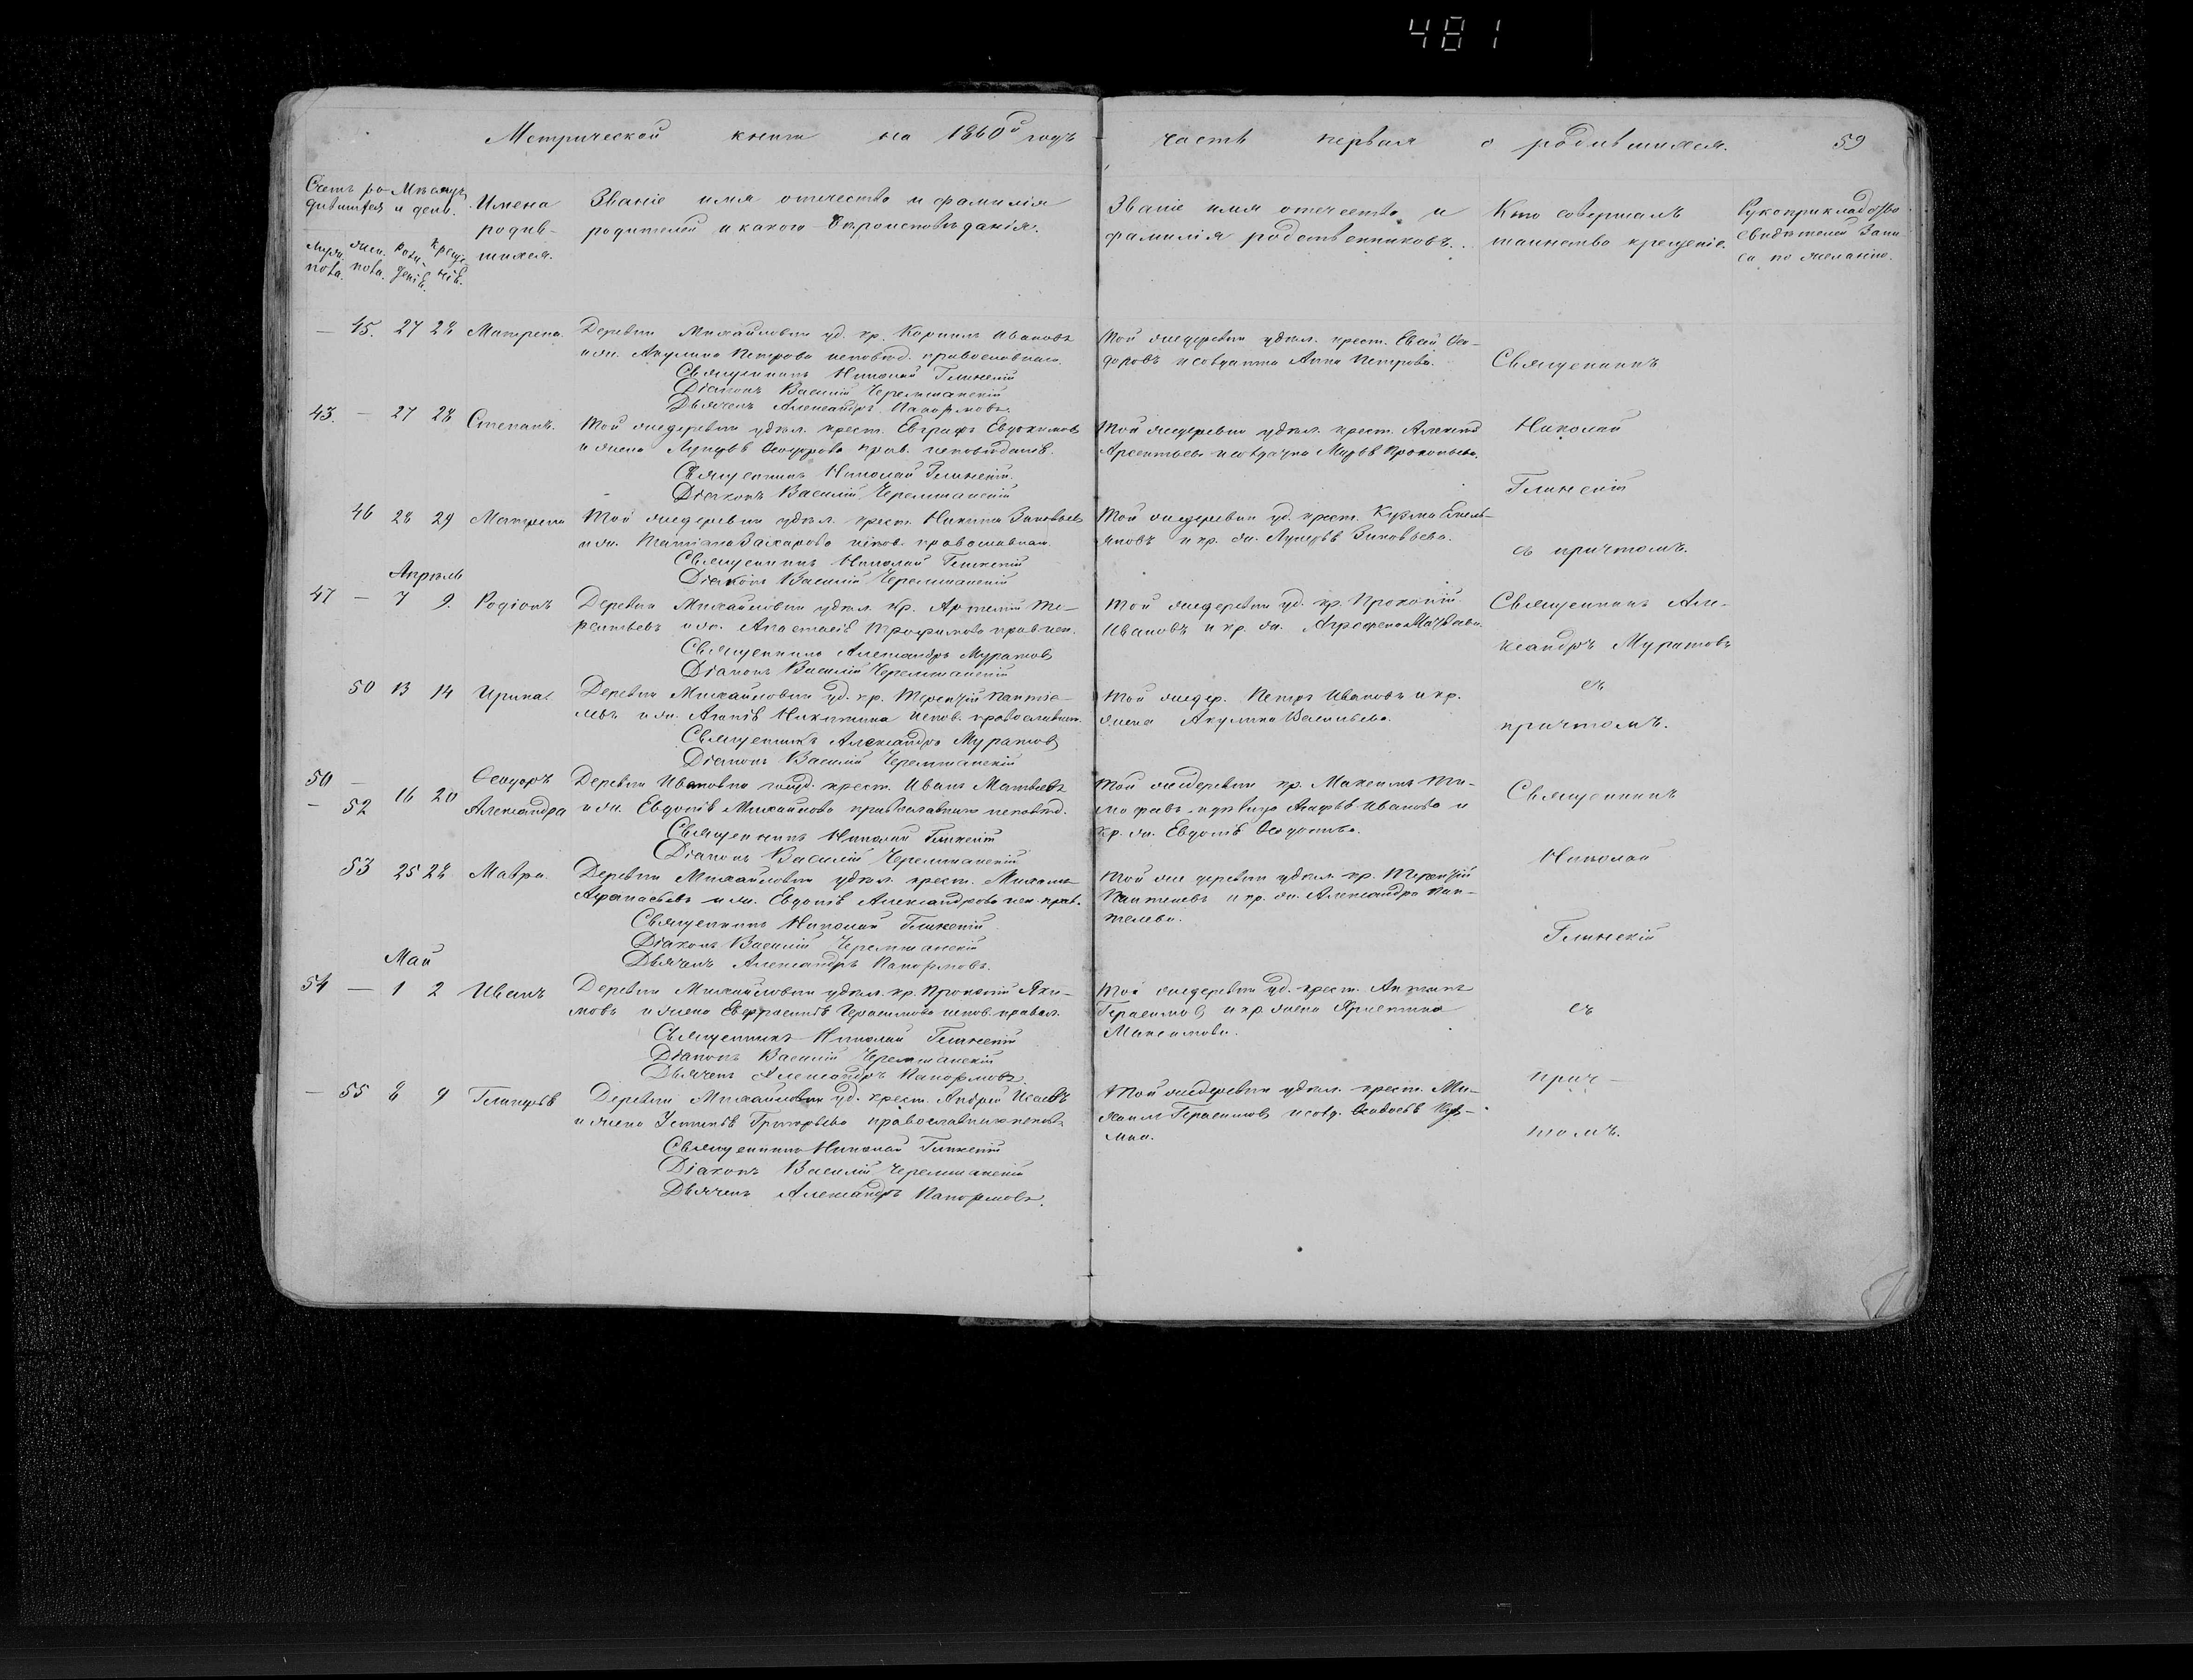 481
Метрической книги на 1860й годъ часть первая о родившихся. 59
Счетъ ро-
дившихся
Мѣсяцъ
и день.
Имена
родив-
шихся.
Званіе имя отчество и фамилія
родителей и какого вѣроисповѣданія.
Званіе имя отчество и
фамилія родственниковъ.
Кто совершалъ
таинство крещенія.
Рукоприкладство
свидѣтелей запи
си по желанію.
— 45. 27 28 Матрена.
Деревни Михайловки уд. кр. Корнилъ Ивановъ
и ж. Акулина Петрова исповѣд. православнаго.
Священникъ Николай Глинскій
Діаконъ Василій Черемшанскій
Дьячекъ Александръ Панормовъ.
Той же деревни удѣл. крест. Евсѣй Ѳео-
доровъ и солдатка Анна Петрова.
43. — 27 28 Степанъ.
Той же деревни удѣл. крест. Евграфъ Евдокимовъ
и жена Лукерья Ѳеодорова прав. исповѣданія.
Священникъ Николай Глинскій.
Діаконъ Василій Черемшанскій
Той же деревни удѣл. крест. Алексѣй
Арсентьевъ и солдатка Марья Прокопьева.
46 28 29 Матрена
Той же деревни удѣл. крест. Никита Зиновьевъ
и ж. Татіана Захарова испов. православнаго.
Священникъ Николай Глинскій
Діаконъ Василій Черемшанскій
Той же деревни уд. крест. Кузма Емель-
яновъ и кр. ж. Лукерья Зиновьева.
Священникъ
Николай
Глинскій
съ причтомъ.
Апрѣль
47 — 7 9. Родіонъ
Деревни Михайловки удѣл. кр. Артемій Те-
рентьевъ и ж. Анастасія Трофимова прав. исп.
Священникъ Александръ Муратовъ
Діаконъ Василій Черемшанскій
Той же деревни уд. кр. Прокопій
Ивановъ и кр. ж. Аграфена Матвѣева.
50 13 14 Ирина.
Деревни Михайловки уд. кр. Терентій Пантіе-
левъ и ж. Агапія Никитина испов. православнаго.
Священникъ Александръ Муратовъ
Діаконъ Василій Черемшанскій
Той же дер. Петръ Ивановъ и кр.
жена Акулина Васильева.
Священникъ Але-
ксандръ Муратовъ
съ
причтомъ.
50 —
— 52 16 20 Ѳеодоръ
Александра
Деревни Ивановки крест. Иванъ Матвѣевъ
и ж. Евдокія Михайлова православнаго исповѣд.
Священникъ Николай Глинскій
Діаконъ Василій Черемшанскій
Той же деревни кр. Максимъ Ти-
мофѣевъ, дѣвица Агафья Иванова и
кр. ж. Евдокія Ѳедотова.
53 25 28 Мавра.
Деревни Михайловки удѣл. крест. Михаилъ
Афанасьевъ и ж. Евдокія Александрова исп. прав.
Священникъ Николай Глинскій
Діаконъ Василій Черемшанскій
Дьячекъ Александръ Панормовъ.
Той же деревни удѣл. кр. Терентій
Пантелевъ и кр. ж. Александра Пан-
телева.
Май
54 — 1 2 Иванъ
Деревни Михайловки удѣл. кр. Прокопій Яки-
мовъ и жена Евфросинія Герасимова испов. правосл.
Священникъ Николай Глинскій
Діаконъ Василій Черемшанскій
Дьячекъ Александръ Панормовъ
Той же деревни уд. крест. Антипъ
Герасимовъ и кр. жена
Максимова.
— 55 8 9 Гликерья
Деревни Михайловки уд. крест. Андрей Исаевъ
и жена Устинья Григорьева православнаго исповѣд.
Священникъ Николай Глинскій
Діаконъ Василій Черемшанскій
Дьячекъ Александръ Панормовъ.
Той же деревни удѣл. крест. Ми-
хаилъ Герасимовъ и солд. Ѳедосья Куз-
мина.
Священникъ
Николай
Глинскій
съ
прич-
томъ.